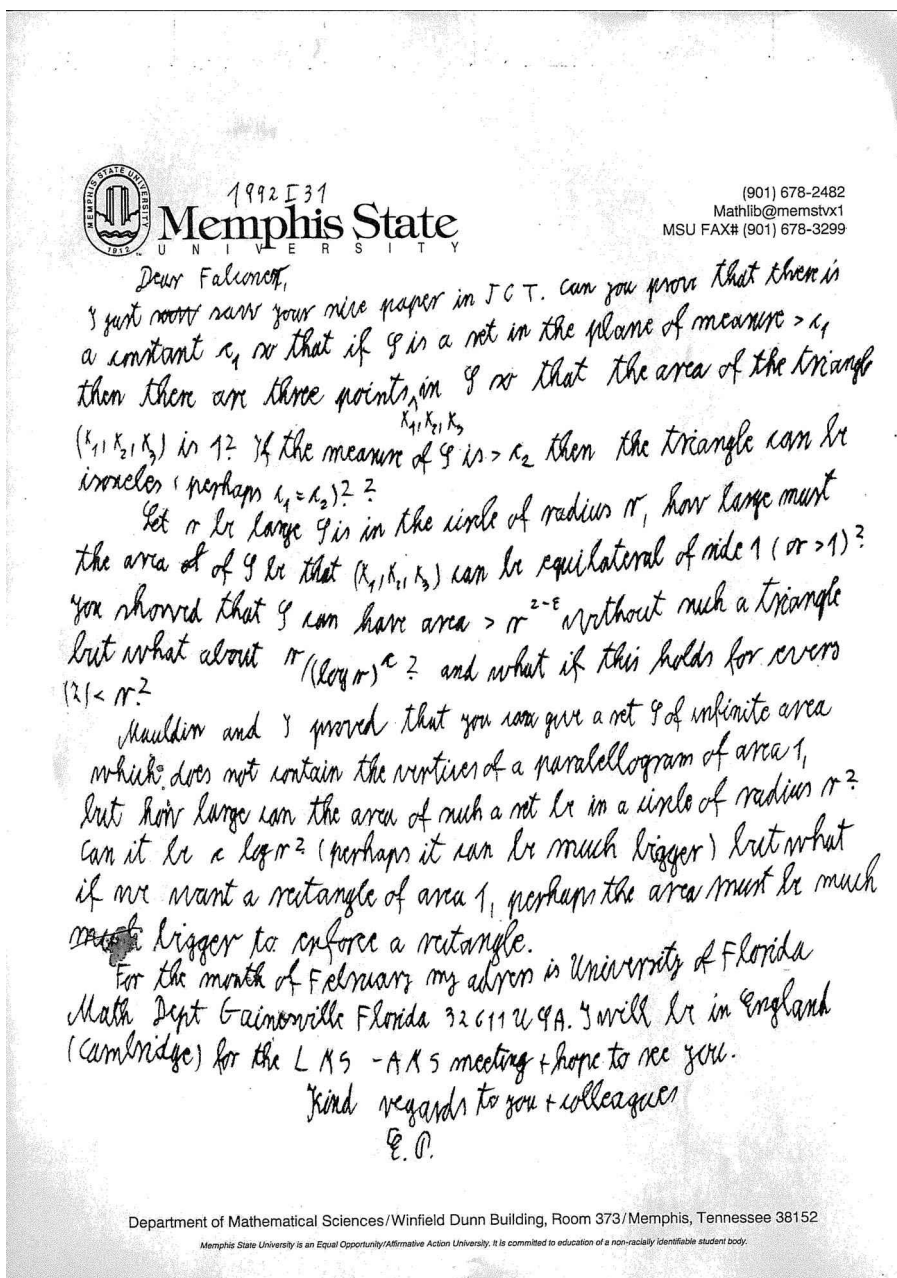 MEMPHIS STATE UNIVERSITY
1912
1992 I 31
Memphis State
UNIVERSITY
(901) 678-2482
Mathlib@memstvx1
MSU FAX# (901) 678-3299
Dear Falconer,
I just saw your nice paper in JCT. Can you prove that there is
a constant c₁ so that if S is a set in the plane of measure > c₁
then there are three points in S so that the area of the triangle
x₁, x₂, x₃
(x₁, x₂, x₃) is 1? If the measure of S is > c₂ then the triangle can be
isosceles (perhaps c₁ = c₂)? ?
Let r be large S is in the circle of radius r, how large must
the area of S be that (x₁, x₂, x₃) can be equilateral of side 1 (or >1)?
You showed that S can have area > r^{2-ε} without such a triangle
but what about r/(log r)^c ? and what if this holds for every
< r?
Mauldin and I proved that you can give a set S of infinite area
which does not contain the vertices of a paralellogram of area 1,
but how large can the area of such a set be in a circle of radius r?
Can it be c log r? (perhaps it can be much bigger) but what
if we want a rectangle of area 1, perhaps the area must be much
bigger to enforce a rectangle.
For the month of February my adress is University of Florida
Math Dept Gainesville Florida 32611 USA. I will be in England
(Cambridge) for the LMS - AMS meeting + hope to see you.
Kind regards to you + colleagues
E. P.
Department of Mathematical Sciences/Winfield Dunn Building, Room 373/Memphis, Tennessee 38152
Memphis State University is an Equal Opportunity/Affirmative Action University. It is committed to education of a non-racially identifiable student body.